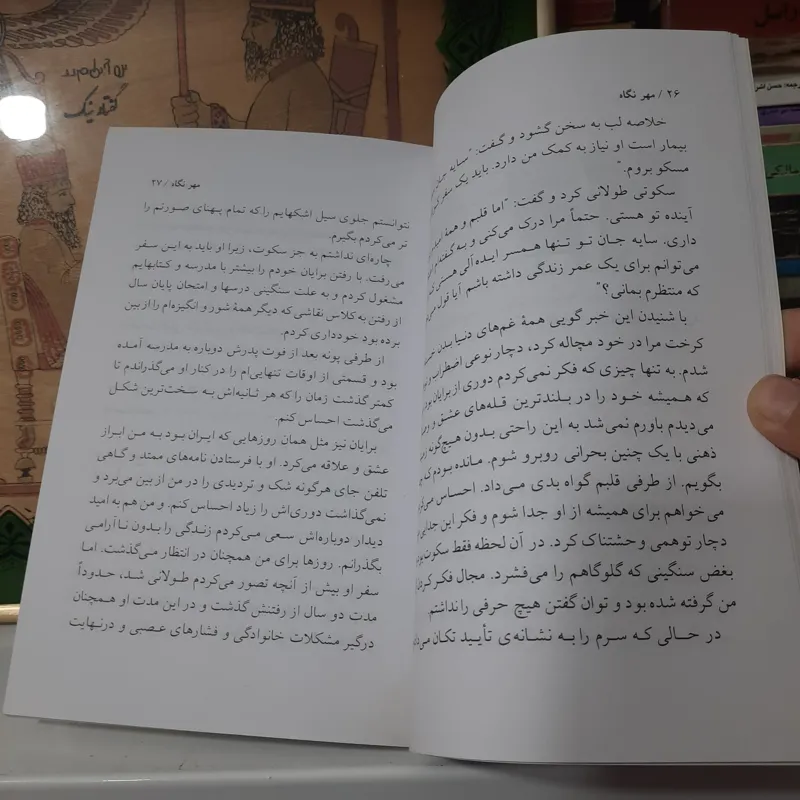 ۲۶ / مهر نگاه
خلاصه لب به سخن گشود و گفت: "سایه جان
بیمار است او نیاز به کمک من دارد. باید یک سفر
مسکو بروم."
سکوتی طولانی کرد و گفت: "اما قلبم و همهٔ
آینده تو هستی. حتماً مرا درک می‌کنی و به
داری. سایه جان تو تنها همسر ایده آلی هستی که
می‌توانم برای یک عمر زندگی داشته باشم آیا قول
که منتظرم بمانی؟"
با شنیدن این خبر گویی همهٔ غم‌های دنیا بدن
کرخت مرا در خود مچاله کرد، دچار نوعی اضطراب و
شدم. به تنها چیزی که فکر نمی‌کردم دوری از برایان بود
که همیشه خود را در بلندترین قله‌های عشق و
می‌دیدم باورم نمی‌شد به این راحتی بدون هیچ‌گونه
ذهنی با یک چنین بحرانی روبرو شوم. مانده بودم که
بگویم. از طرفی قلبم گواه بدی می‌داد. احساس می‌کردم
می‌خواهم برای همیشه از او جدا شوم و فکر این جدایی
دچار توهمی وحشتناک کرد. در آن لحظه فقط سکوت بود
بغض سنگینی که گلوگاهم را می‌فشرد. مجال فکر کردن از
من گرفته شده بود و توان گفتن هیچ حرفی را نداشتم.
در حالی که سرم را به نشانه‌ی تأیید تکان می‌دادم
مهر نگاه / ۲۷
نتوانستم جلوی سیل اشکهایم را که تمام پهنای صورتم را
تر می‌کردم بگیرم.
چاره‌ای نداشتم به جز سکوت، زیرا او باید به این سفر
می‌رفت. با رفتن برایان خودم را بیشتر با مدرسه و کتابهایم
مشغول کردم و به علت سنگینی درسها و امتحان پایان سال
از رفتن به کلاس نقاشی که دیگر همهٔ شور و انگیزه‌ام را از بین
برده بود خودداری کردم.
از طرفی پونه بعد از فوت پدرش دوباره به مدرسه آمده
بود و قسمتی از اوقات تنهایی‌ام را در کنار او می‌گذراندم تا
کمتر گذشت زمان را که هر ثانیه‌اش به سخت‌ترین شکل
می‌گذشت احساس کنم.
برایان نیز مثل همان روزهایی که ایران بود به من ابراز
عشق و علاقه می‌کرد. او با فرستادن نامه‌های ممتد و گاهی
تلفن جای هرگونه شک و تردیدی را در من از بین می‌برد و
نمی‌گذاشت دوری‌اش را زیاد احساس کنم. و من هم به امید
دیدار دوباره‌اش سعی می‌کردم زندگی را بدون ناآرامی
بگذرانم. روزها برای من همچنان در انتظار می‌گذشت. اما
سفر او بیش از آنچه تصور می‌کردم طولانی شد، حدوداً
مدت دو سال از رفتنش گذشت و در این مدت او همچنان
درگیر مشکلات خانوادگی و فشارهای عصبی و درنهایت
گفتار نیک